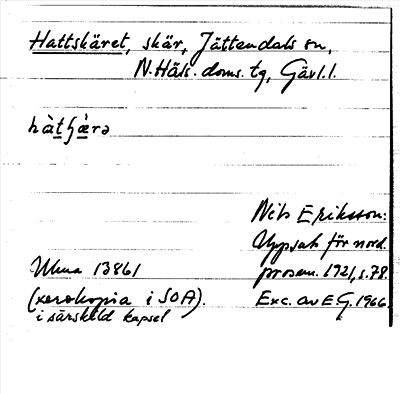 Hattskäret, skär, Jättendals sn,
N. Häls. doms. tg, Gävl. l.
hàtʃæ̀rə
Nils Eriksson:
Uppsats för nord.
prosem. 1921, s. 78.
Ulma 13861
(xerokopia i SOA).
i särskild kapsel
Exc. av E G. 1966.